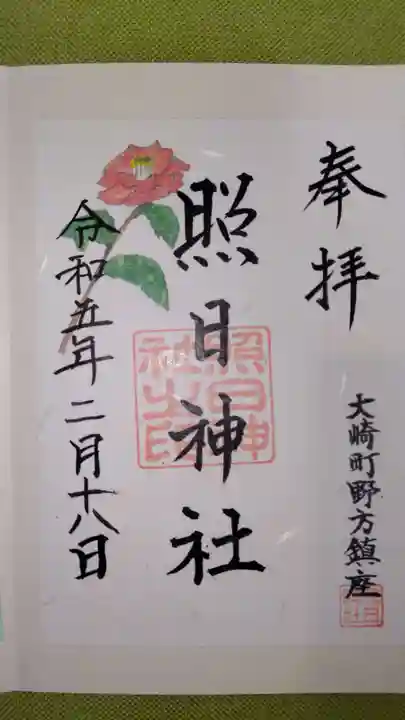 奉拝
大崎町野方鎮座
照日神社
照日神
社之印
令和五年二月十八日